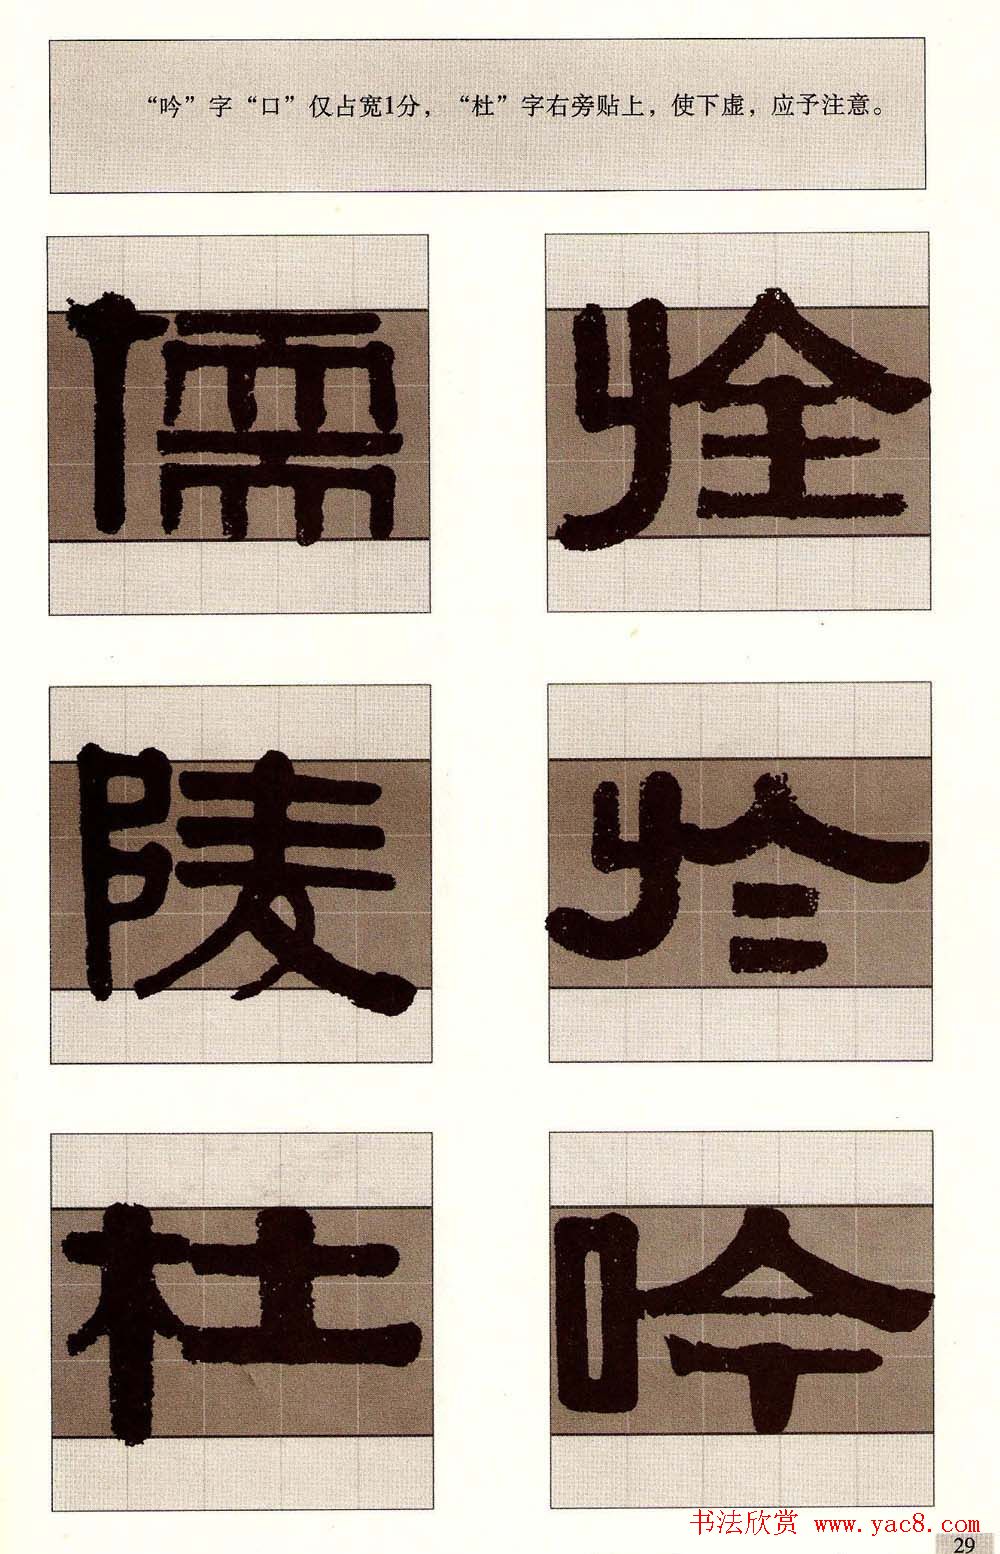 “吟”字“口”仅占宽1分，“杜”字右旁贴上，使下虚，应予注意。
儒
陵 於
杜 吟
书法欣赏 www.yac8.com
29